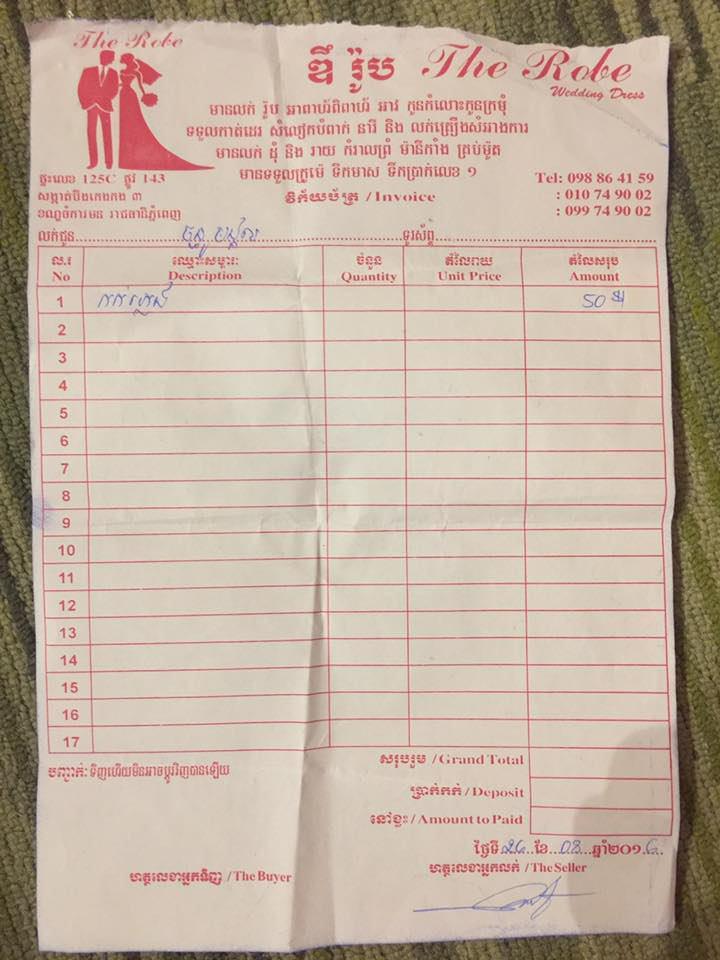 The Robe
ឌឺ រ៉ូប The Robe
Wedding Dress
មានលក់ រ៉ូប អាពាហ៍ពិពាហ៍ អាវ កូនកំលោះកូនក្រមុំ
ទទួលកាត់ដេរ សំលៀកបំពាក់ នារី និង លក់គ្រឿងសំអាងការ
មានលក់ ដុំ និង រាយ កំរាលព្រំ ម៉ានីកាំង គ្រប់ម៉ូត
មានទទួលក្រូម៉េ ទឹកមាស ទឹកប្រាក់លេខ ១
ផ្ទះលេខ 125C ផ្លូវ 143
សង្កាត់បឹងកេងកង ៣
ខណ្ឌចំការមន រាជធានីភ្នំពេញ
វិក័យប័ត្រ / Invoice
Tel: 098 86 41 59
: 010 74 90 02
: 099 74 90 02
លក់ជូន ទូរស័ព្ទ
ល.រ ឈ្មោះសម្ភារៈ ចំនួន តំលៃរាយ តំលៃសរុប
No Description Quantity Unit Price Amount
1 50 $
2
3
4
5
6
7
8
9
10
11
12
13
14
15
16
17
បញ្ជាក់: ទិញហើយមិនអាចប្តូរវិញបានឡើយ
សរុបរួម / Grand Total
ប្រាក់កក់ / Deposit
នៅខ្វះ / Amount to Paid
ថ្ងៃទី 26 ខែ 08 ឆ្នាំ២០១6
ហត្ថលេខាអ្នកទិញ / The Buyer
ហត្ថលេខាអ្នកលក់ / The Seller